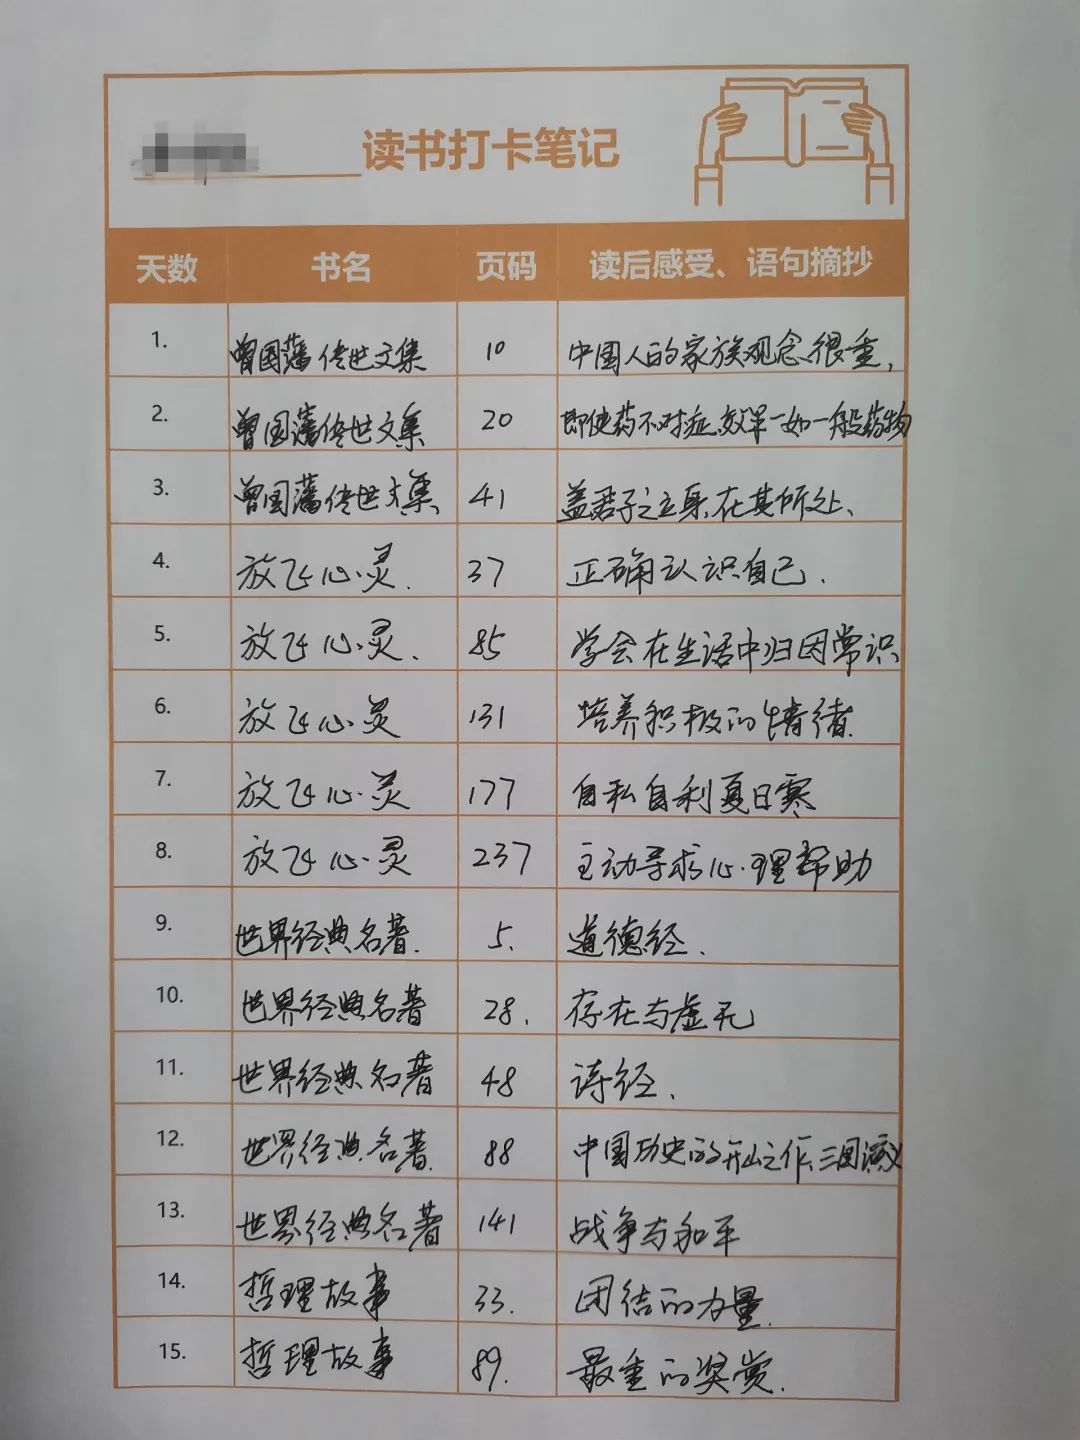 读书打卡笔记
天数 书名 页码 读后感受、语句摘抄
1. 曾国藩传世文集 10 中国人的家族观念很重,
2. 曾国藩传世文集 20 即使药不对症,效果一如一般药物
3. 曾国藩传世文集 41 盖君子之立身,在其所处、
4. 放飞心灵. 37 正确认识自己.
5. 放飞心灵. 85 学会在生活中归因常识
6. 放飞心灵 131 培养积极的情绪.
7. 放飞心灵 177 自私自利夏日寒
8. 放飞心灵 237 主动寻求心理帮助
9. 世界经典名著. 5. 道德经.
10. 世界经典名著 28. 存在与虚无
11. 世界经典名著 48 诗经.
12. 世界经典名著. 88 中国历史的开山之作、三国演义
13. 世界经典名著 141 战争与和平
14. 哲理故事 33. 团结的力量.
15. 哲理故事 89. 最重的奖赏.